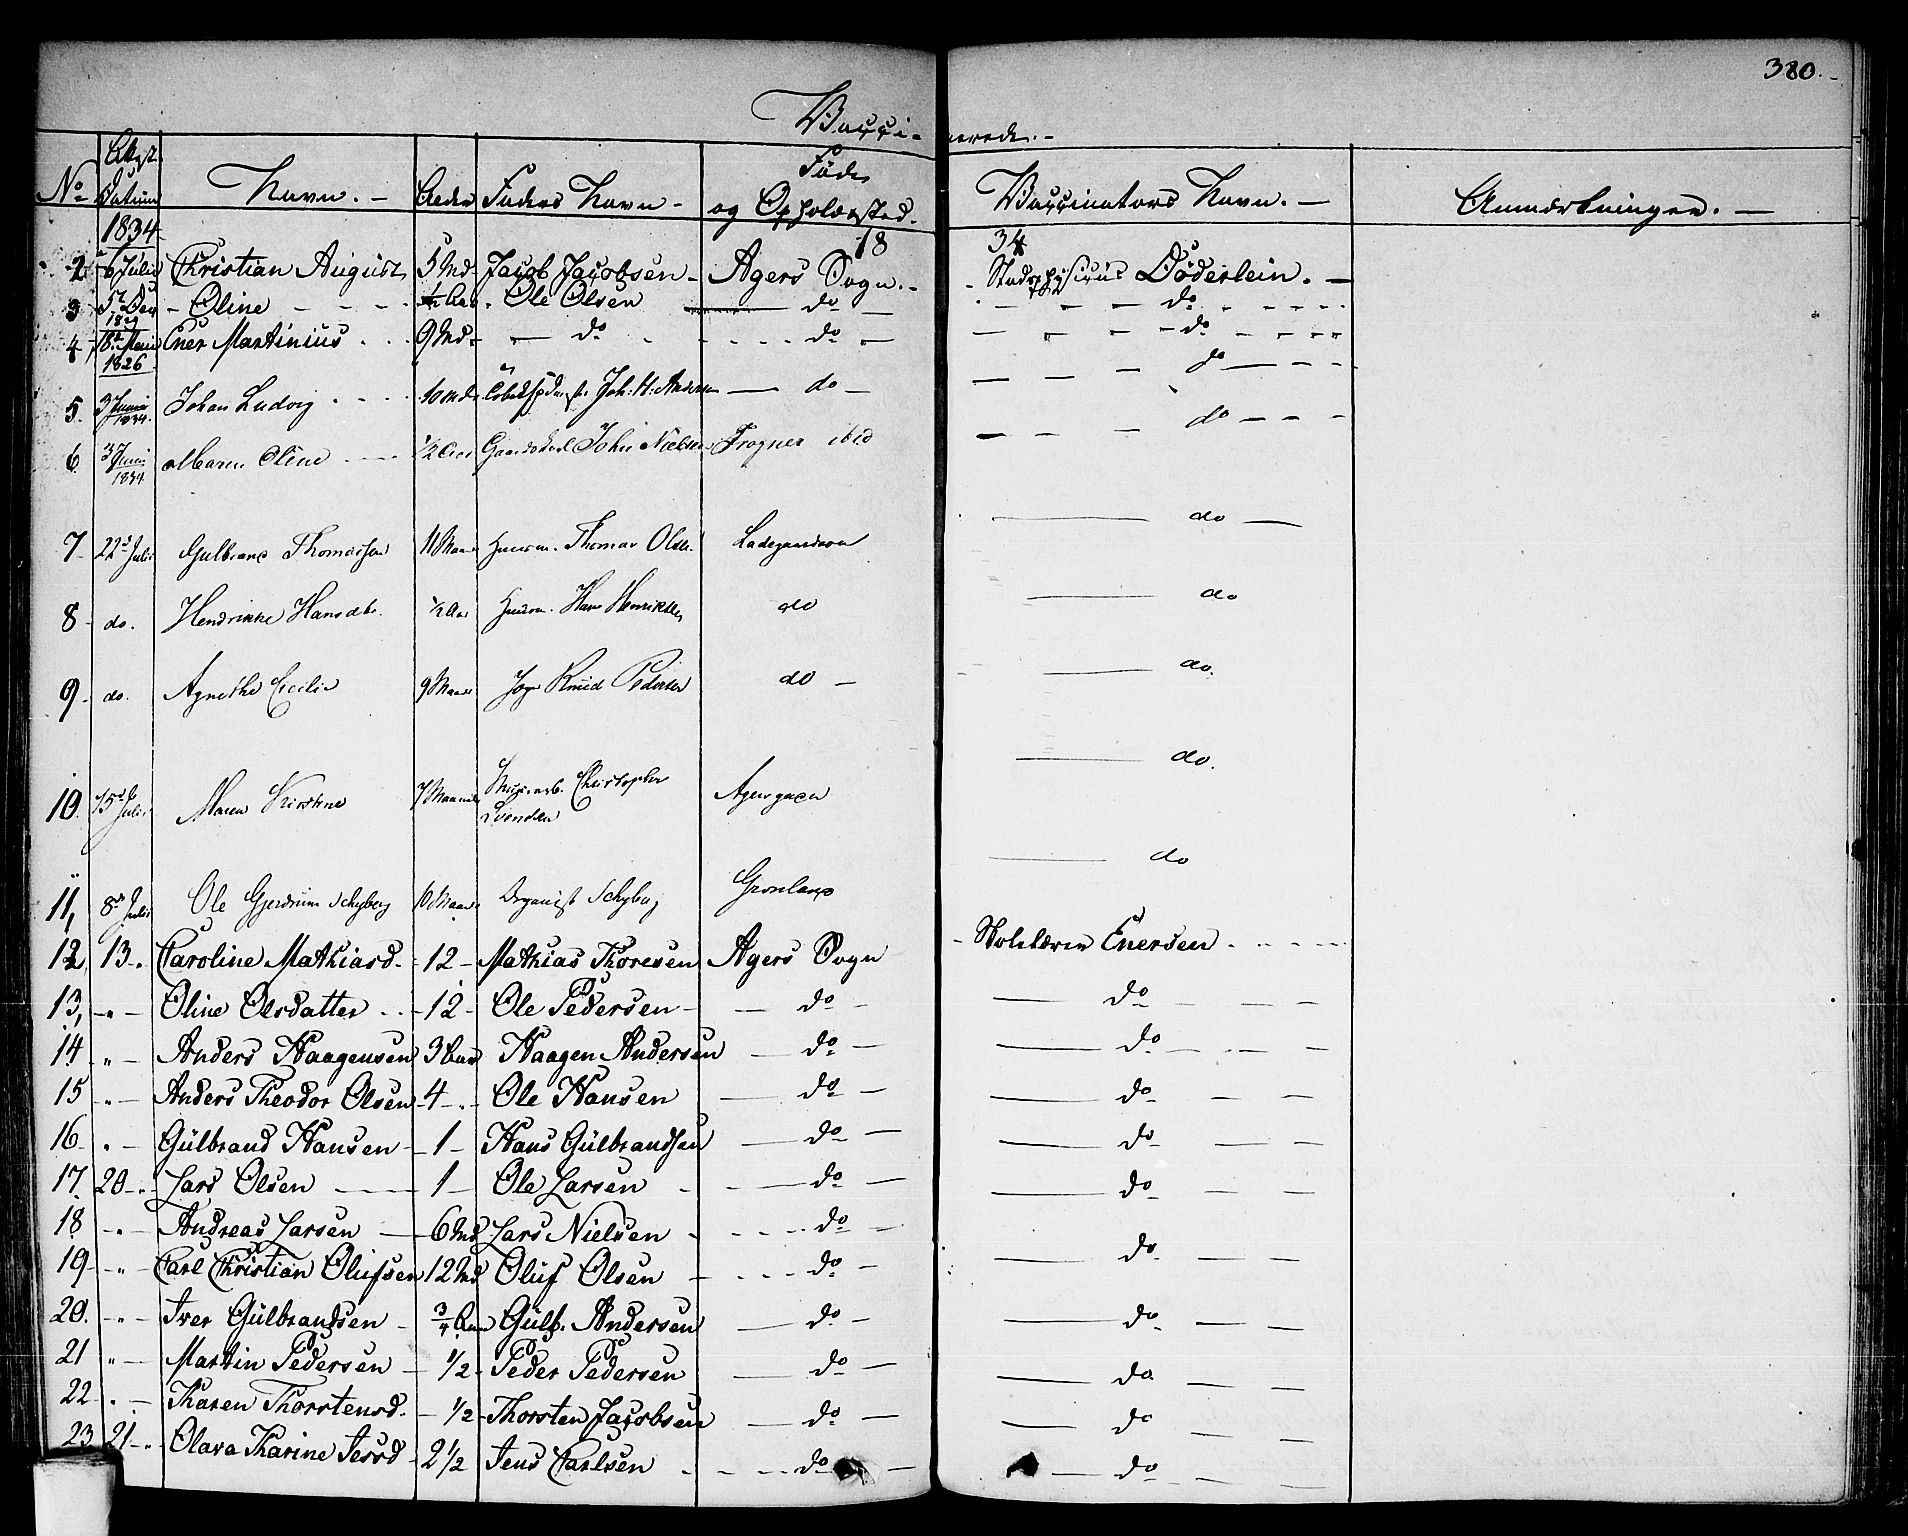 380.
Vacci- nerede.
No Attest. Datum Navn. Alder Faders Navn og Føde Opholdssted. Vaccinators Navn. Anmærkninger.
1834 18 34
2 6 Juli Christian August 5 Md Jacob Jacobsen Agers Sogn. Stadsphysicus Döderlein.
3 Oline 1/2 Aar Ole Olsen do do
4 1826 Ener Martinius 9 Md do do do
5. 3 Juni 1834. Johan Ludvig 10 Md Joh. H. Andersen do do
6 3 Juni 1834 Maren Oline 1/2 Aar Gaardskarl John Nielsen Frogner ibid do
7 22d Juli Gulbrand Thomassen 11 Maan Huusm. Thomas Olsen Ladegaardsøen do
8 do. Hendrikke Hansdtr. 1/2 Aar Huusm. Hans Henriksen do do
9 do. Agnethe Cecilie 9 Maan Knud Pedersen do do.
10 15d Juli Maren Kirstine 7 Maaneder Christopher Svendsen do.
11, 8d Juli Ole Gjerdrum Schyberg 10 Maan Organist Schyberg Grønland do
12 13 Caroline Mathiasd. 12 Mathias Thoresen Agers Sogn Skolelærer Enersen
13, " Oline Olsdatter 12 Ole Pedersen do do
14 " Anders Haagensen 3 Aar Haagen Andersen do do
15 " Anders Theodor Olsen 4 Ole Hansen do do
16 " Gülbrand Hansen 1 Hans Gülbrandsen do do
17. 20 Lars Olsen 1 Ole Larsen do do
18 " Andreas Larsen 6 Md Lars Nielsen do
19 " Carl Christian Olufsen 12 Md Oluf Olsen do do
20. " Iver Gülbrandsen 3/4 Aar Gülb. Andersen do do
21 " Martin Pedersen 1/2 Peder Pedersen do do
22 " Karen Thorstensd. 1/2 Thorsten Jacobsen do do
23 21 Olava Karine Jensd 2 1/2 Jens Carlsen do do